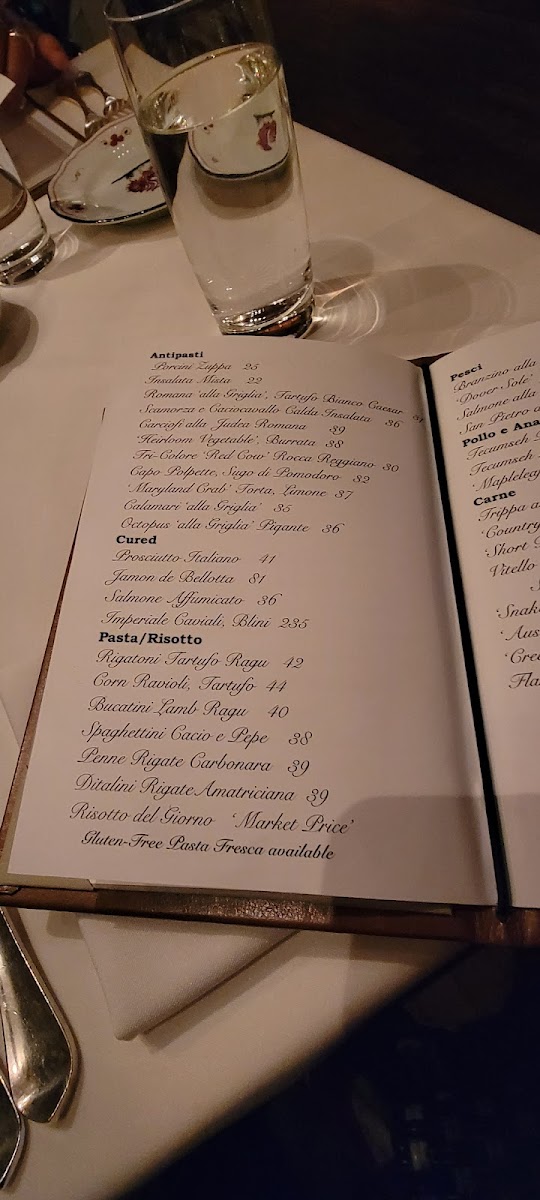 Antipasti
Porcini Zuppa 25
Insalata Mista 22
Romana 'alla Griglia', Tartufo Bianco Caesar
Scamorza e Caciocavallo Calda Insalata 36
Carciofi alla Judea Romana 39
'Heirloom Vegetable', Burrata 38
Tri-Colore 'Red Cow' Rocca Reggiano 30
Capo Polpette, Sugo di Pomodoro 32
'Maryland Crab' Torta, Limone 37
Calamari 'alla Griglia' 35
Octopus 'alla Griglia' Piqante 36
Cured
Prosciutto Italiano 41
Jamon de Bellotta 81
Salmone Affumicato 36
Imperiale Caviali, Blini 235
Pasta/Risotto
Rigatoni Tartufo Ragu 42
Corn Ravioli, Tartufo 44
Bucatini Lamb Ragu 40
Spaghettini Cacio e Pepe 38
Penne Rigate Carbonara 39
Ditalini Rigate Amatriciana 39
Risotto del Giorno 'Market Price'
Gluten-Free Pasta Fresca available
Pesci
Branzino alla
'Dover Sole'
Salmone alla
San Pietro a
Pollo e Ana
Tecumseh
Tecumseh
'Mapleleaf
Carne
Trippa a
'Country
'Short
Vitello
'Snak
'Aus
'Cre
Fla